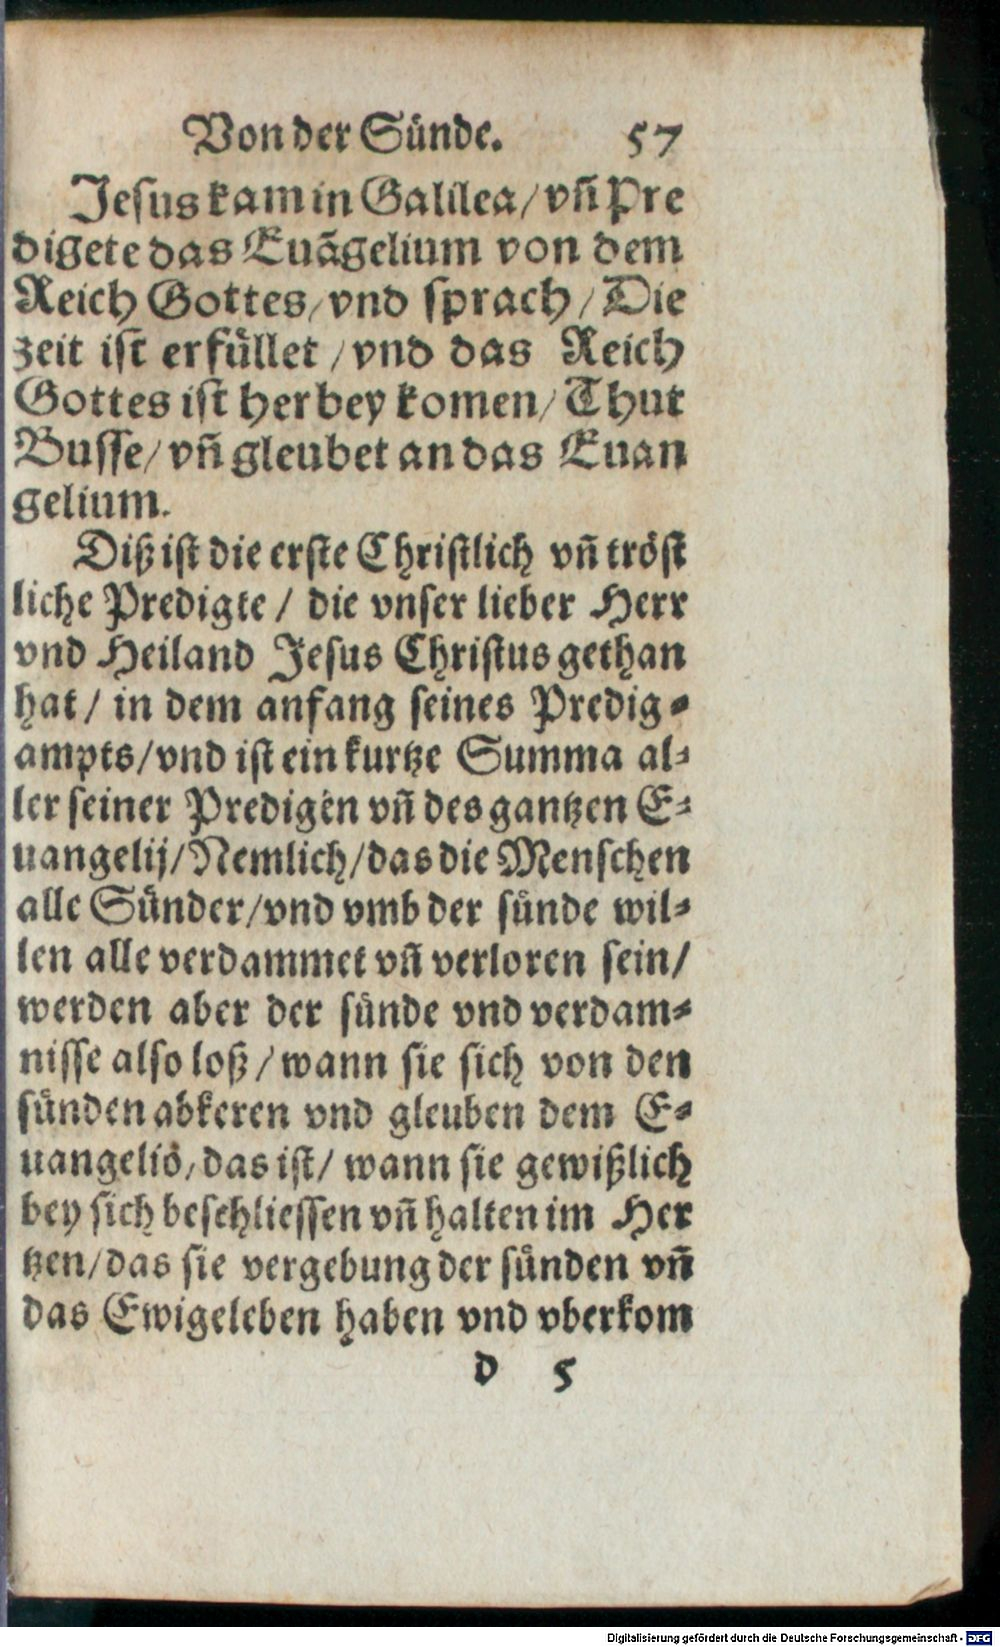 Von der Sünde. 57
Jesus kam in Galilea/ vñ Pre
digete das Euãgelium von dem
Reich Gottes/ vnd sprach/ Die
zeit ist erfüllet/ vnd das Reich
Gottes ist herbey komen/ Thut
Busse/ vñ gleubet an das Euan
gelium.
Diß ist die erste Christlich vñ tröst
liche Predigte/ die vnser lieber Herr
vnd Heiland Jesus Christus gethan
hat/ in dem anfang seines Predig-
ampts/ vnd ist ein kurtze Summa al-
ler seiner Predigen vñ des gantzen E-
uangelij/ Nemlich/ das die Menschen
alle Sünder/ vnd vmb der sünde wil-
len alle verdammet vñ verloren sein/
werden aber der sünde vnd verdam-
nisse also loß/ wann sie sich von den
sünden abkeren vnd gleuben dem E-
uangelio, das ist/ wann sie gewißlich
bey sich beschliessen vñ halten im Her
tzen/ das sie vergebung der sünden vñ
das Ewige leben haben vnd vberkom
d 5
Digitalisierung gefördert durch die Deutsche Forschungsgemeinschaft - DFG